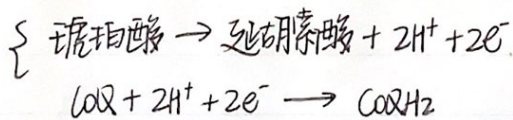 琥珀酸 → 延胡索酸 + 2H⁺ + 2e⁻
CoQ + 2H⁺ + 2e⁻ → CoQH₂